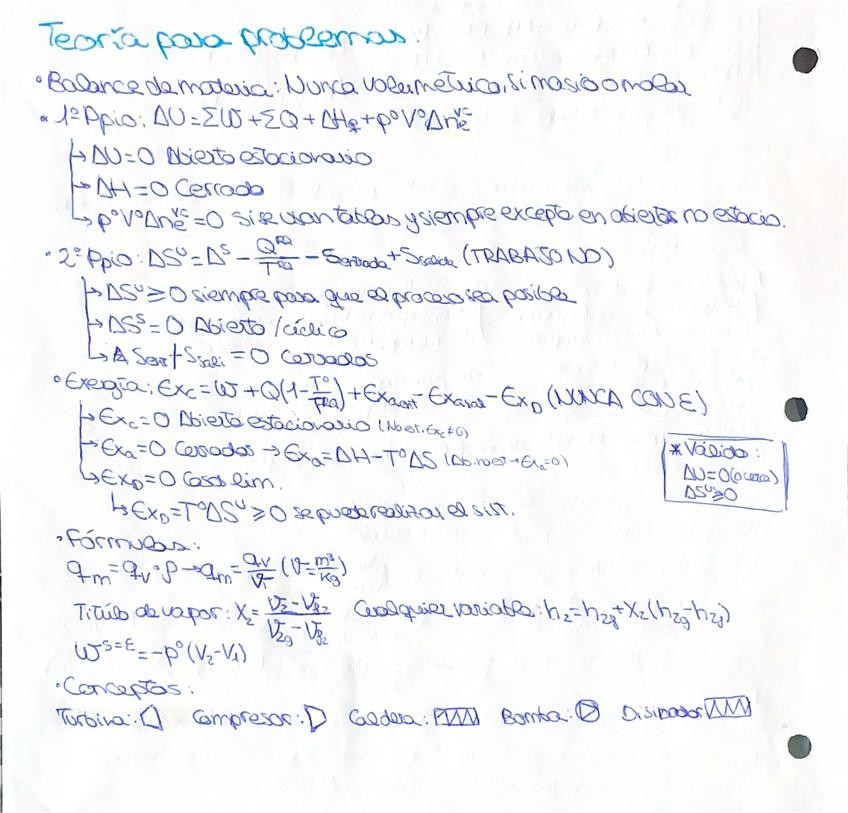 Teoría para problemas:
• Balance de materia: Nunca volumétrico, si masico o molar
• 1º Ppio: ΔU = ΣW + ΣQ + ΔHe + p°V°Δne^vc
↳ ΔU=0 Abierto estacionario
↳ ΔH=0 Cerrado
↳ p°V°Δne^vc=0 si se usan tablas y siempre excepto en abiertos no estacio.
• 2º Ppio: ΔS^U = Δ^S - Q^FQ/T^FQ - Sentrada + Ssalida (TRABAJO NO)
↳ ΔS^U ≥ 0 siempre para que el proceso sea posible
↳ ΔS^S = 0 Abierto / cíclico
↳ Sent + Ssali = 0 Cerrados
• Exergía: Exc = W + Q(1 - T°/T^FQ) + Exa ent - Exa sal - Ex_D (NUNCA CON E)
↳ Exc = 0 Abierto estacionario (No est. Exc≠0)
↳ Exa = 0 Cerrados → Exa = ΔH - T°ΔS (Ab. no est → Exa=0)
↳ Ex_D = 0 Caso lim.
↳ Ex_D = T°ΔS^U ≥ 0 se puede realizar el sist.
* Válido:
ΔU = 0 (o cerca)
ΔS^U ≥ 0
• Fórmulas:
qm = qv · ρ → qm = qv/v1 (v = m³/kg)
Título de vapor: X2 = (v2 - vf2)/(v2g - vf2) Cualquier variable: h2 = h2f + X2(h2g - h2f)
W^S=E = -p°(V2 - V1)
• Conceptos:
Turbina: Compresor: Caldera: Bomba: Disipador